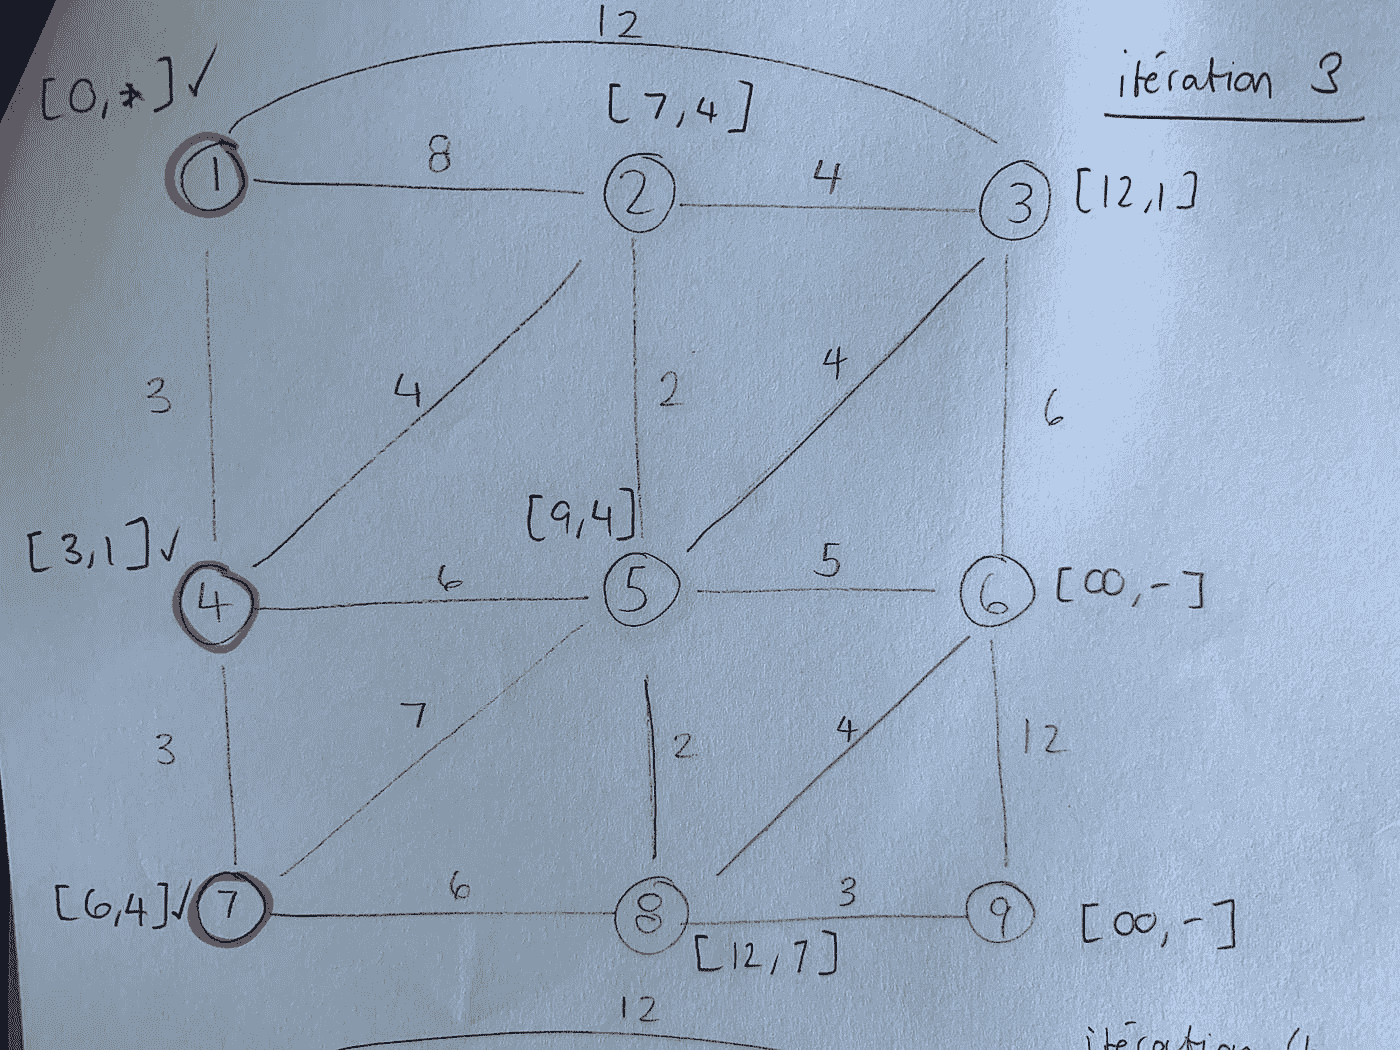 12
[0,*]✓
[7,4]
itération 3
1
8
2
4
3
[12,1]
3
4
2
4
6
[3,1]✓
[9,4]
4
6
5
5
6
[∞,-]
3
7
2
4
12
[6,4]✓
7
6
8
3
9
[∞,-]
[12,7]
12
itération